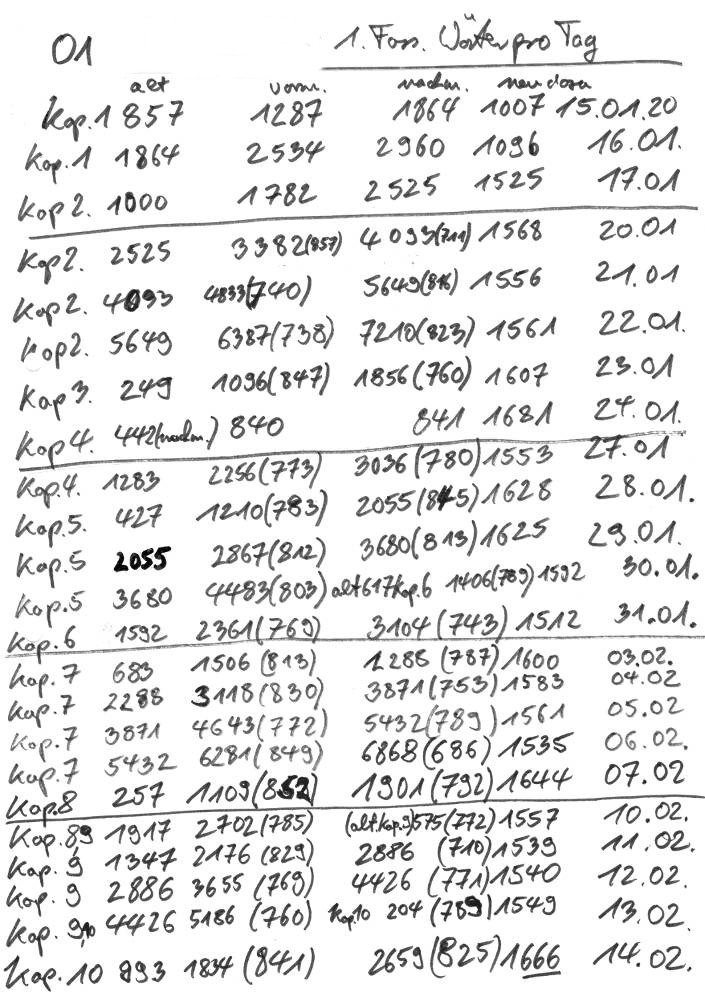 01 1. Fass. Wörter pro Tag
alt vorm. nachm. neu dazu
Kap. 1 857 1287 1864 1007 15.01.20
Kap. 1 1864 2534 2960 1096 16.01.
Kap 2. 1000 1782 2525 1525 17.01
Kap 2. 2525 3382(857) 4093(711) 1568 20.01
Kap 2. 4093 4833(740) 5649(816) 1556 21.01
Kap 2. 5649 6387(738) 7210(823) 1561 22.01.
Kap 3. 249 1096(847) 1856(760) 1607 23.01
Kap 4. 442(nachm.) 840 841 1681 24.01.
Kap 4. 1283 2256(773) 3036(780) 1553 27.01
Kap. 5. 427 1210(783) 2055(845) 1628 28.01.
Kap. 5 2055 2867(812) 3680(813) 1625 29.01.
Kap. 5 3680 4483(803) alt 617 Kap. 6 1406(789) 1592 30.01.
Kap. 6 1592 2361(769) 3104(743) 1512 31.01.
Kap. 7 683 1506(813) 1288(787) 1600 03.02.
Kap. 7 2288 3118(830) 3871(753) 1583 04.02
Kap. 7 3871 4643(772) 5432(789) 1561 05.02
Kap. 7 5432 6281(849) 6868(686) 1535 06.02.
Kap. 8 257 1109(852) 1901(792) 1644 07.02
Kap. 8,9 1917 2702(785) (alt. Kap. 9) 575(772) 1557 10.02.
Kap. 9 1347 2176(829) 2886 (710) 1539 11.02.
Kap. 9 2886 3655(769) 4426 (771) 1540 12.02.
Kap. 9,10 4426 5186(760) Kap 10 204(789) 1549 13.02.
Kap. 10 993 1834(841) 2659(825) 1666 14.02.